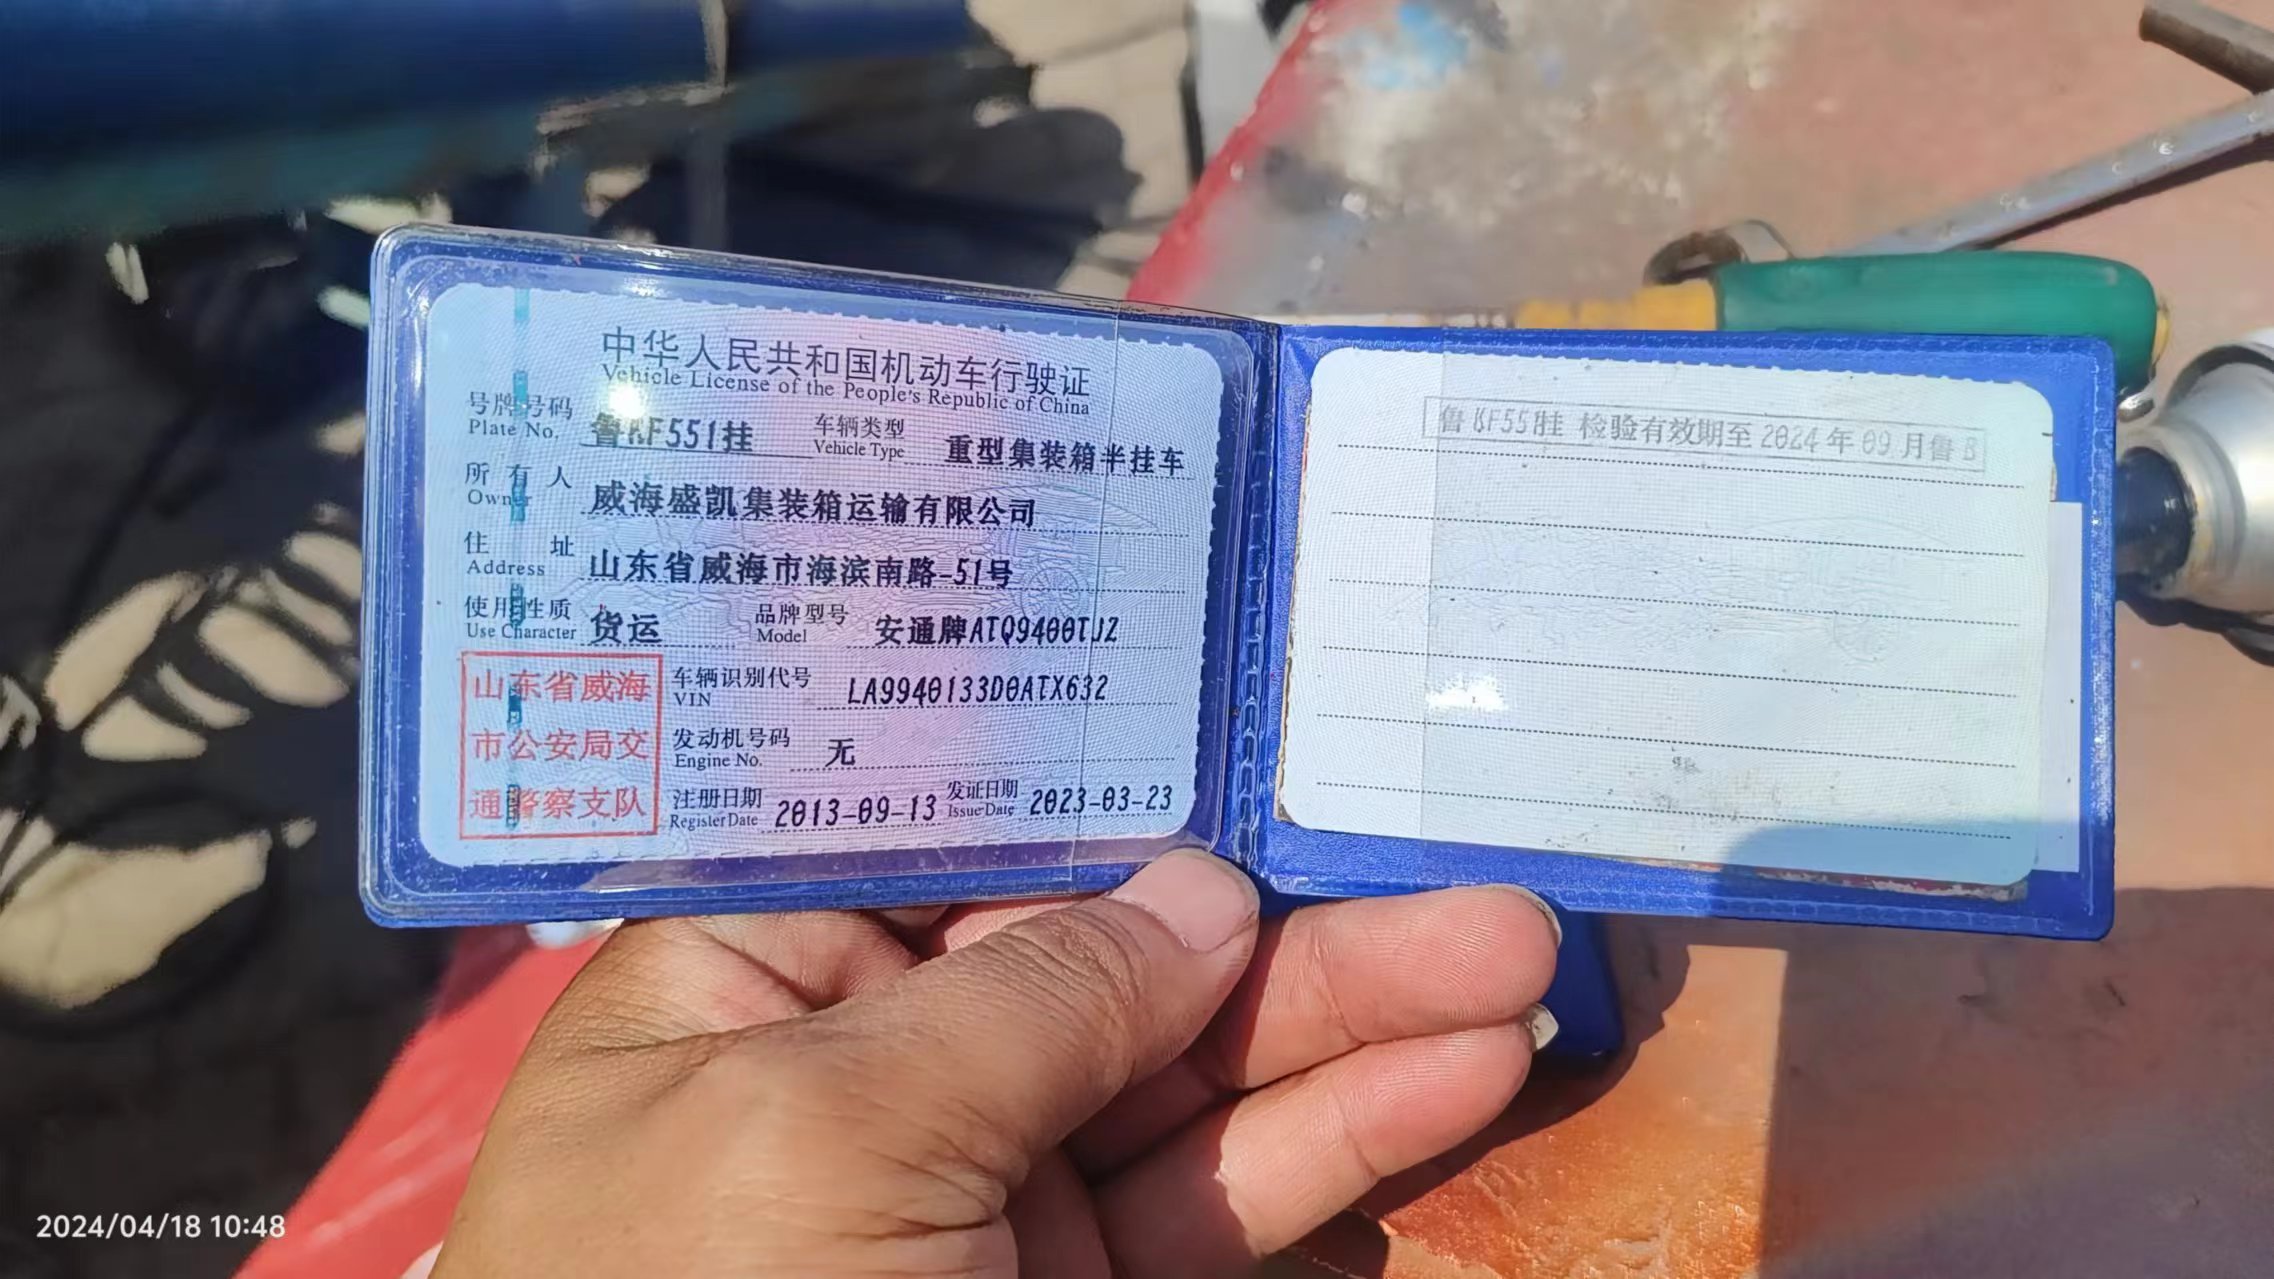 中华人民共和国机动车行驶证
Vehicle License of the People's Republic of China
号牌号码 鲁KF551挂 车辆类型 重型集装箱半挂车
Plate No. Vehicle Type
所有人 威海盛凯集装箱运输有限公司
Owner
住址 山东省威海市海滨南路-51号
Address
使用性质 货运 品牌型号 安通牌ATQ9400TJZ
Use Character Model
山东省威海
市公安局交
通警察支队
车辆识别代号 LA9940133D0ATX632
VIN
发动机号码 无
Engine No.
注册日期 2013-09-13 发证日期 2023-03-23
Register Date Issue Date
鲁KF551挂 检验有效期至2024年09月鲁B
2024/04/18 10:48